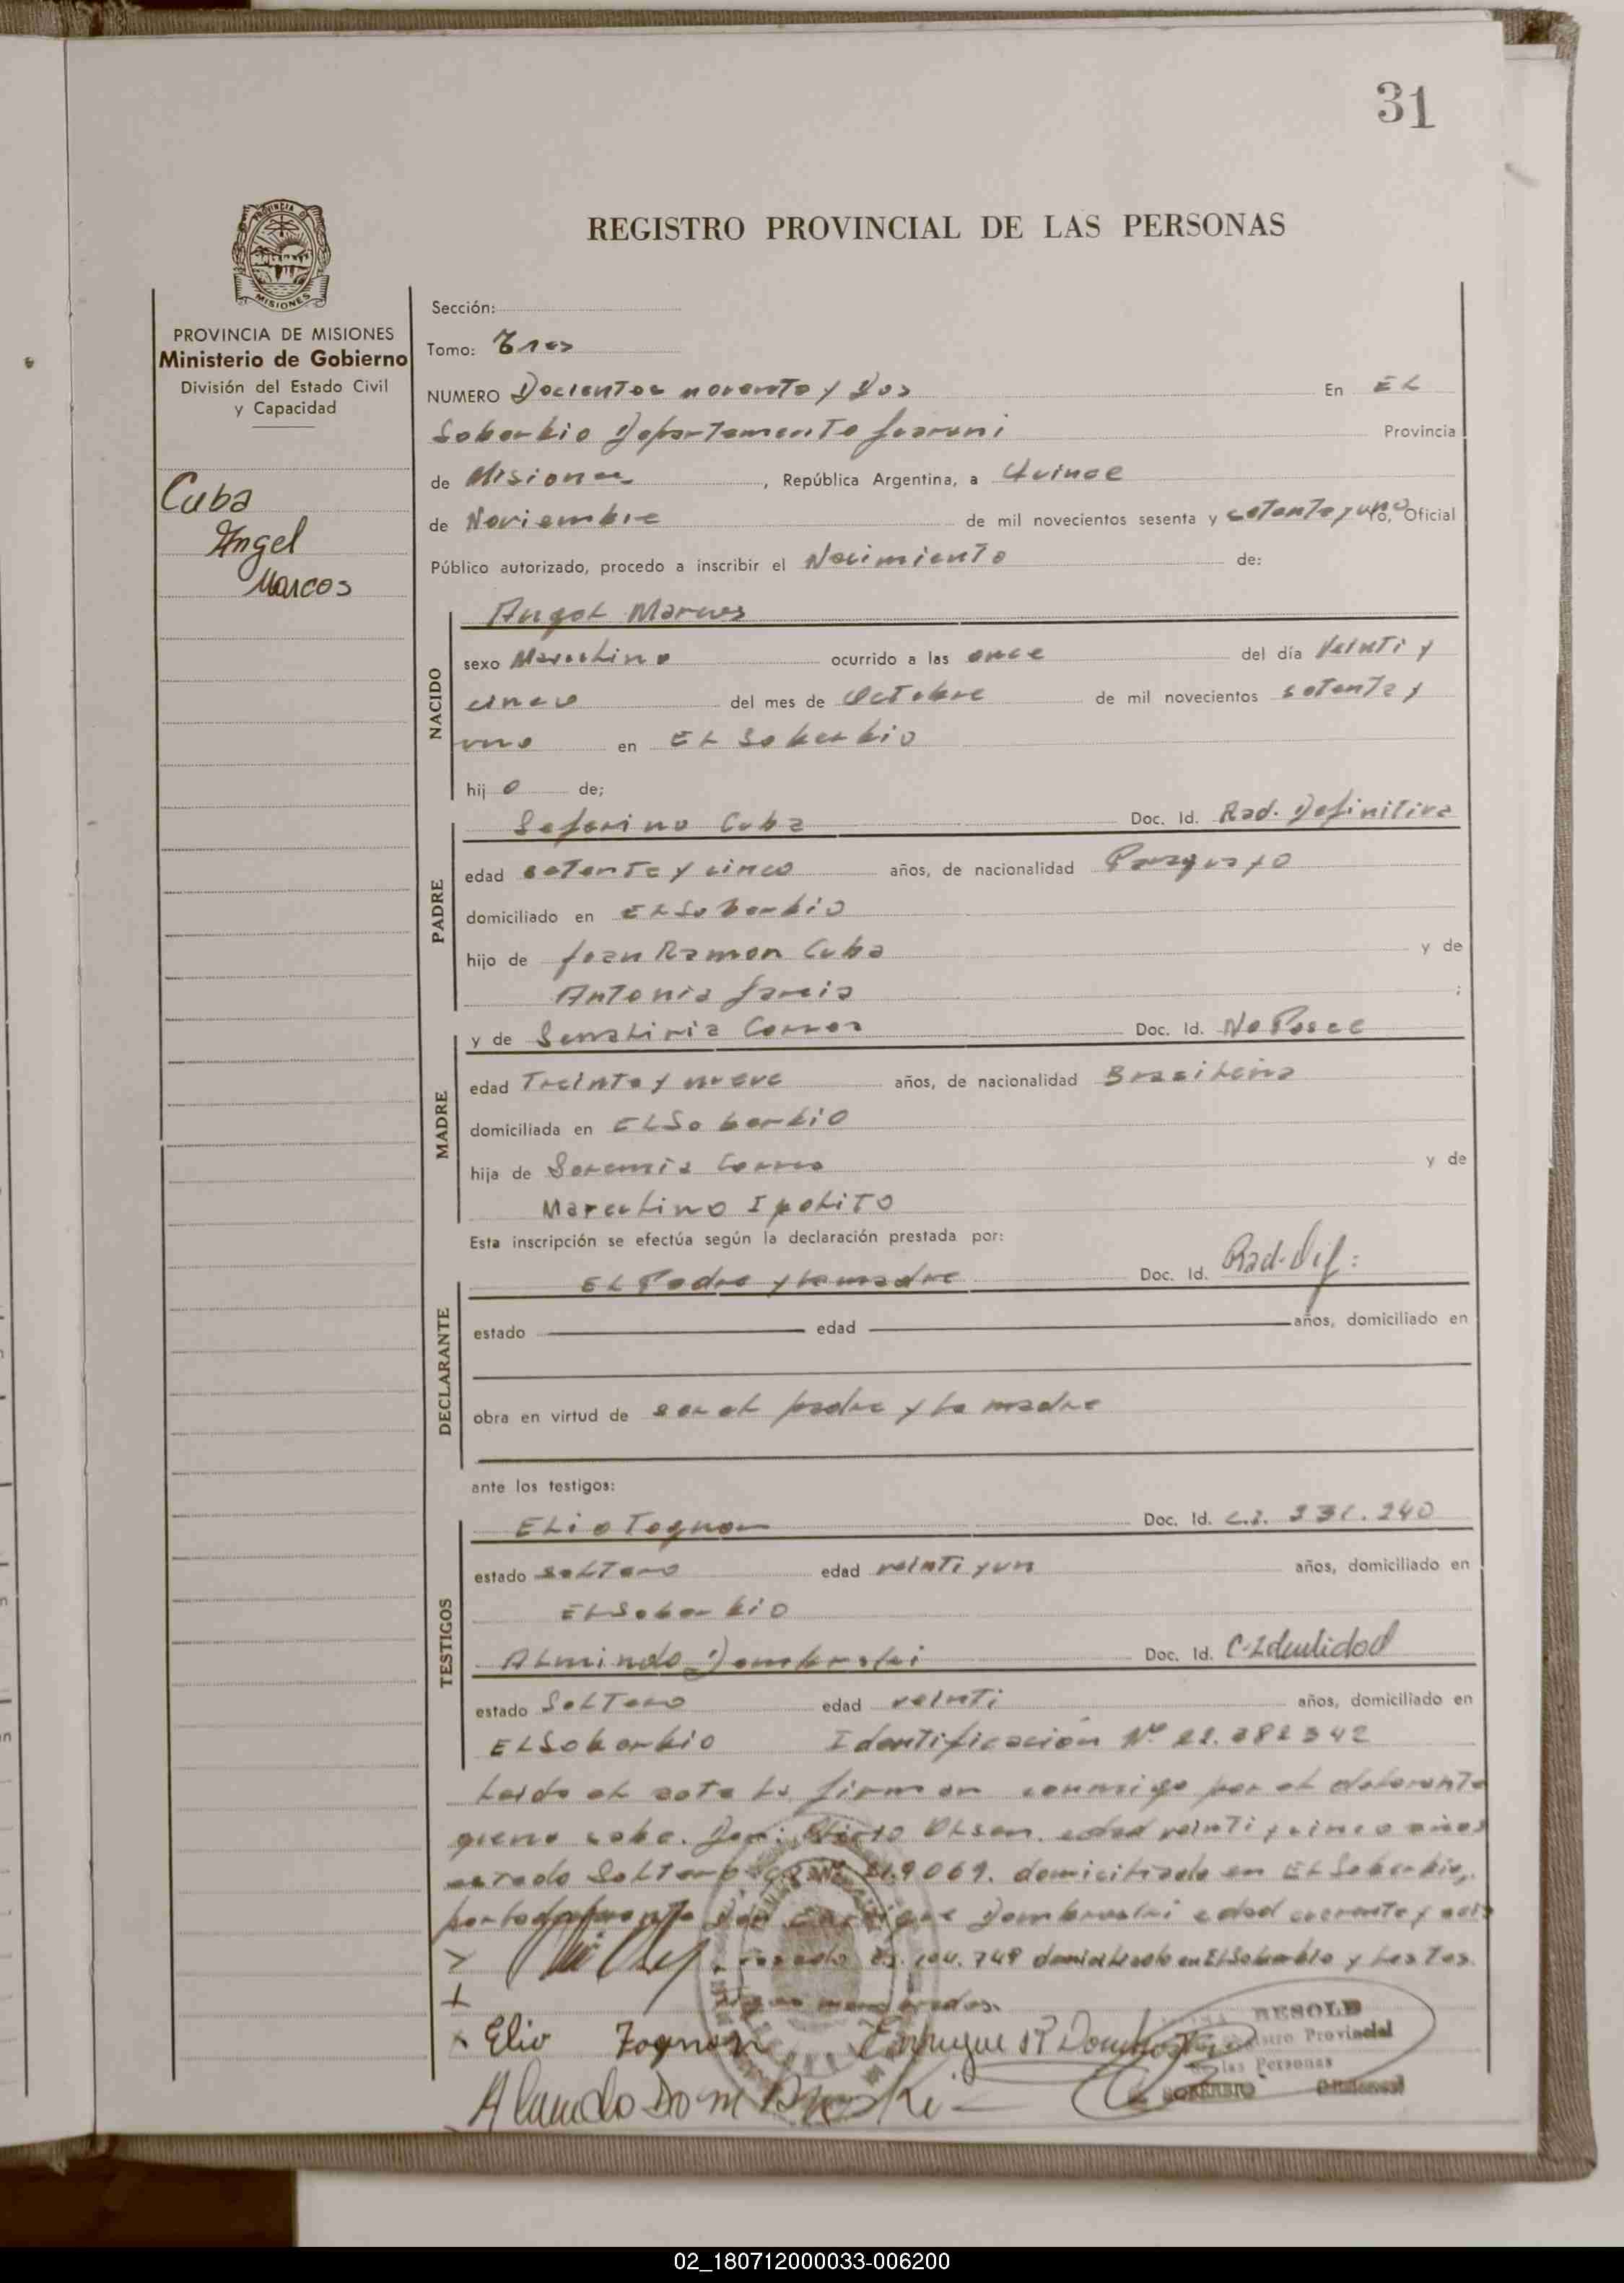 31
PROVINCIA DE
MISIONES
REGISTRO PROVINCIAL DE LAS PERSONAS
PROVINCIA DE MISIONES
Ministerio de Gobierno
División del Estado Civil
y Capacidad
Cuba
Angel
Marcos
Sección:
Tomo: Tres
NUMERO Docientos noventa y Dos En EL
Soberbio Departamento Guarani Provincia
de Misiones, República Argentina, a Quince
de Noviembre de mil novecientos sesenta y setenta y uno, Oficial
Público autorizado, procedo a inscribir el Nacimiento de:
NACIDO
Angel Marcos
sexo Masculino ocurrido a las once del día Veinti y
cinco del mes de Octubre de mil novecientos setenta y
uno en EL Soberbio
hij o de;
PADRE
Seferino Cuba Doc. Id. Rad. Definitiva
edad setenta y cinco años, de nacionalidad Paraguayo
domiciliado en EL Soberbio
hijo de Juan Ramon Cuba y de
Antonia Garcia ;
MADRE
y de Correa Doc. Id. No Posee
edad Treinta y nueve años, de nacionalidad Brasileña
domiciliada en EL Soberbio
hija de Correa y de
Marcelino Ipolito
Esta inscripción se efectúa según la declaración prestada por:
DECLARANTE
EL Padre y la madre Doc. Id. Rad. Dif:
estado edad años, domiciliado en
obra en virtud de ser el padre y la madre
ante los testigos:
TESTIGOS
Elio Tognon Doc. Id. C.I. 331.240
estado solTero edad veinti y un años, domiciliado en
EL Soberbio
Almindo Dombroski Doc. Id. C. Identidad
estado SolTero edad veinti años, domiciliado en
EL Soberbio Identificación Nº 22.282342
Leido el acta la firman conmigo por el declarante
Olsen. edad veinti y cinco años
estado Soltero 219069. domiciliado en EL Soberbio,
Don Enrique Dombroski edad cuarenta y seis
casado 104.749 domiciliado en El Soberbio y Los Tes
tigos
x Elio Tognon Enrique
RESOLD
Registro Provincial
de las Personas
SOBERBIO
Almindo Dombroski
02_180712000033-006200